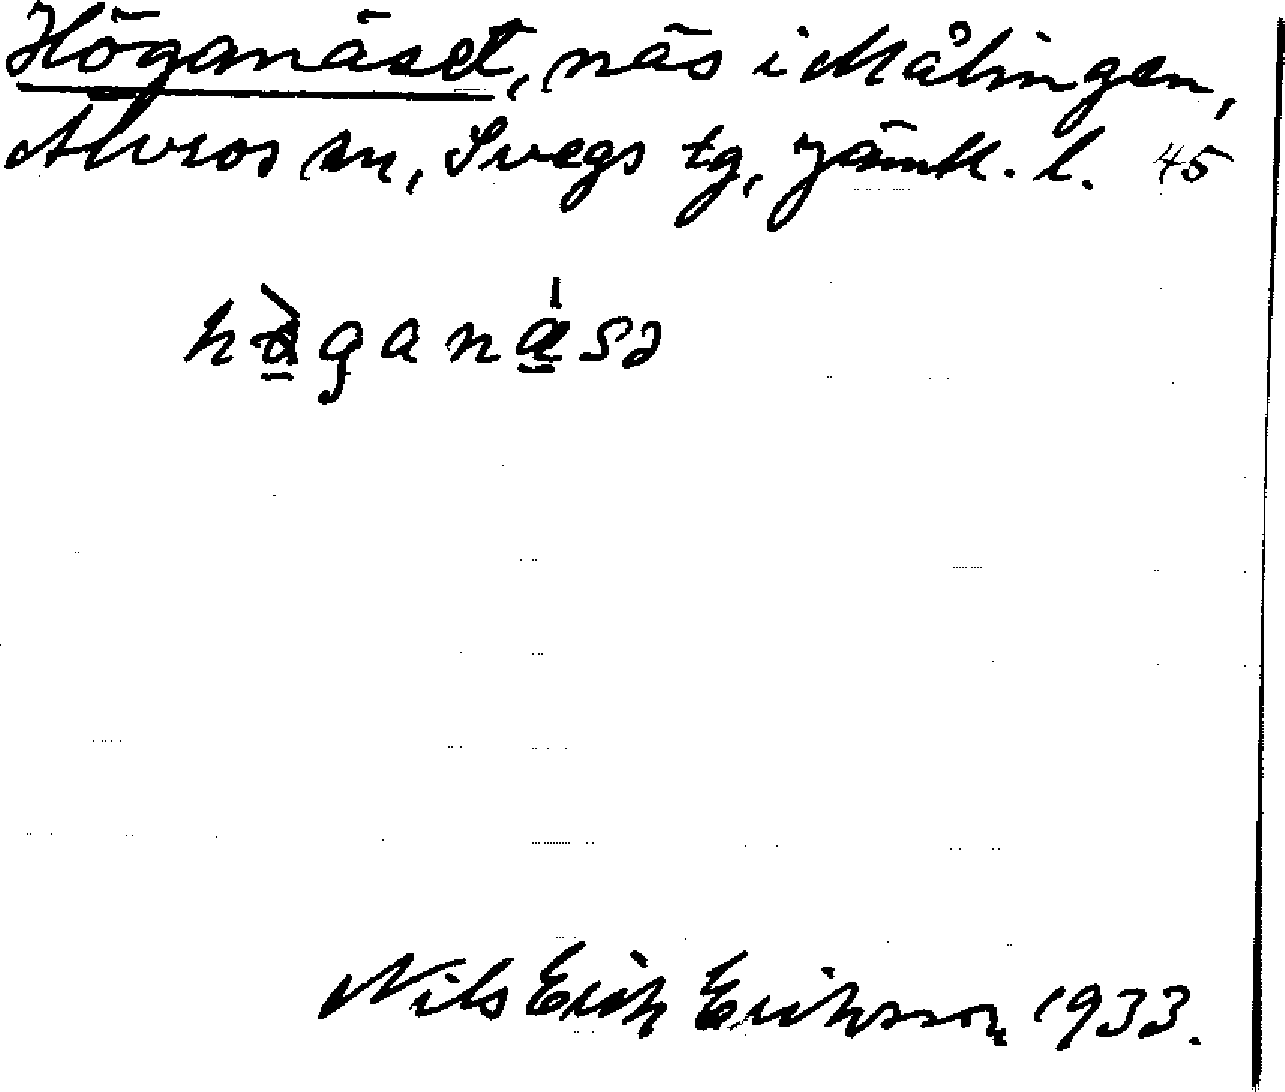 Höganäset, näs i Målingen,
Älvros sn, Svegs tg, Jämtl. l. 45
Nils Erik Eriksson 1933.